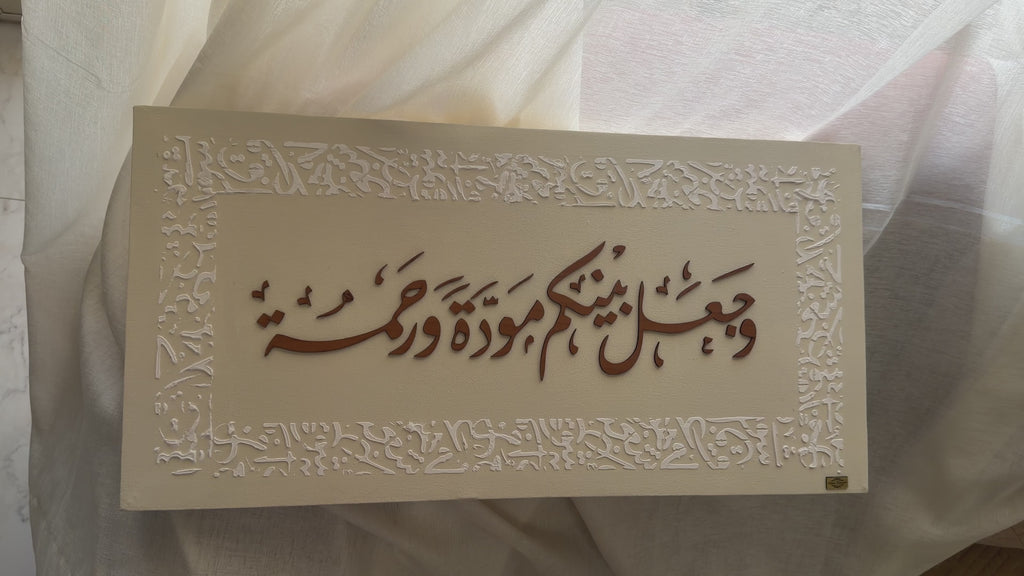 وجعل بينكم مودّةً ورحمة